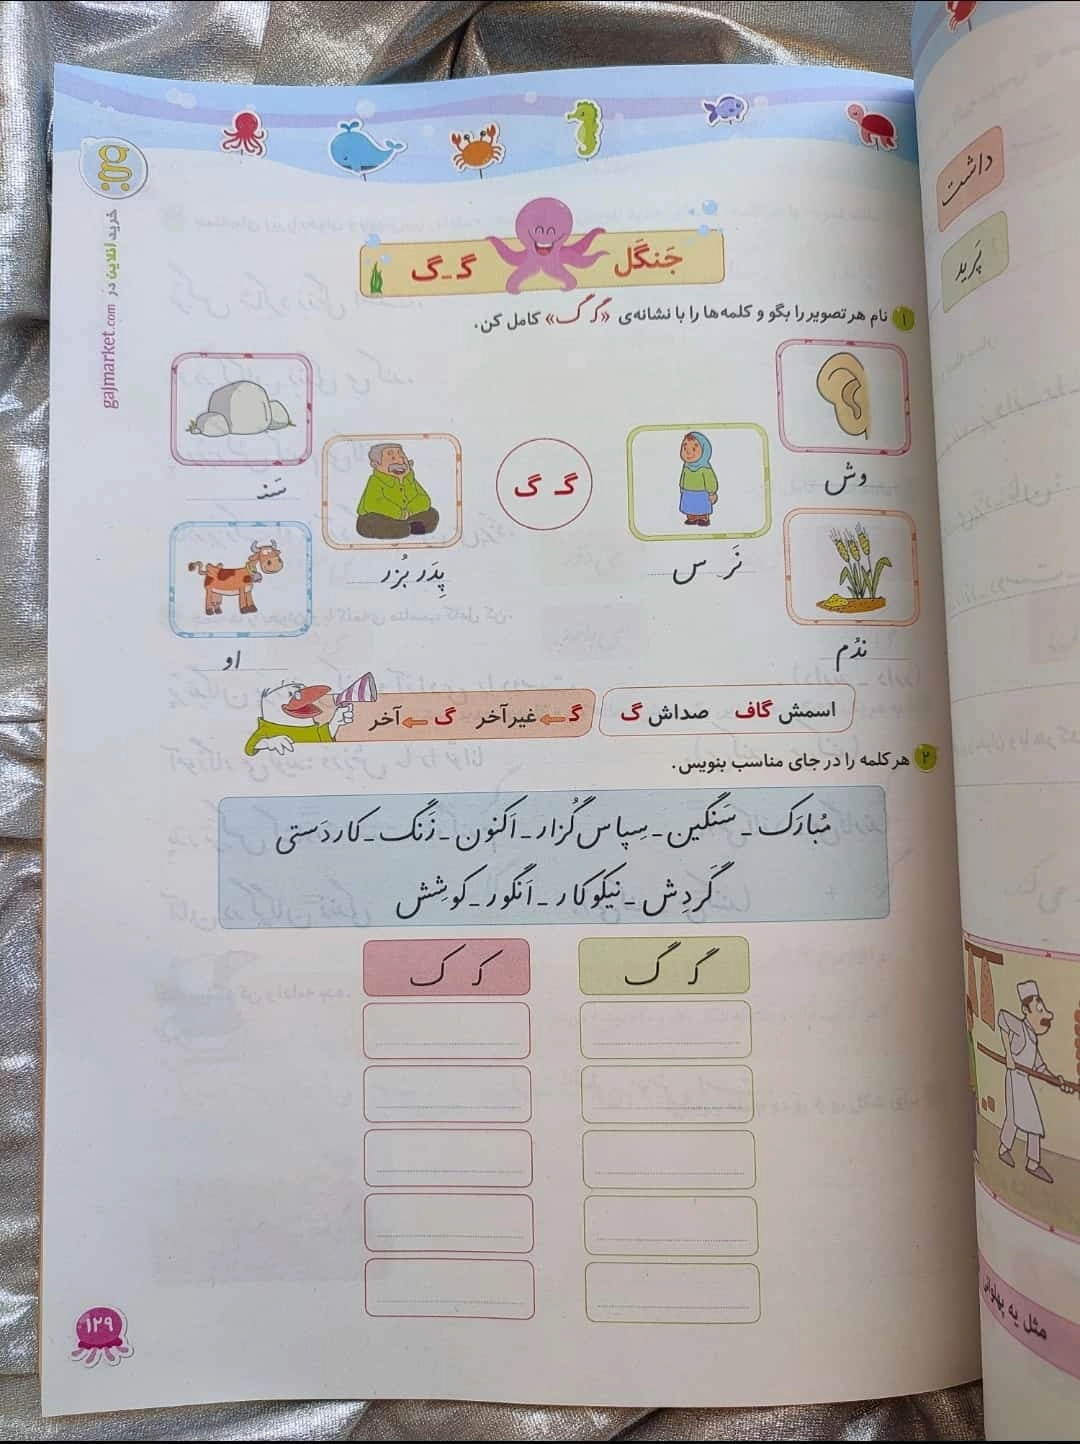 جَنگَل گـ ـگ
۱ نام هر تصویر را بگو و کلمه‌ها را با نشانه‌ی «گـ گ» کامل کن.
گـ گ
وش
سَنـ
نَر س
پِدَر بُزر
ندُم
او
اسمش گاف صداش گ
گـ ← غیر آخر گ ← آخر
۲ هر کلمه را در جای مناسب بنویس.
مُبارَک - سَنگین - سِپاس گُزار - اَکنون - زَنگ - کاردَستی
گَردِش - نیکوکار - اَنگور - کوشِش
گـ گ
کـ ک
۱۲۹
خرید آنلاین در gajmarket.com
داشت
پَرید
مثل یه پهلوانی